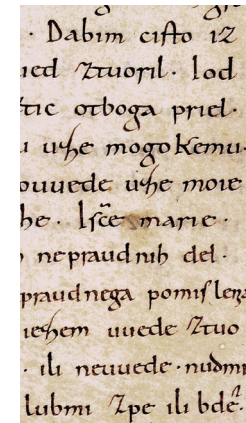 · Dabim cisto iz
ied Ztuoril · Iod
tic otboga priel ·
u uze mogoKemu·
ouuede uze moie
he · Isc̄e marie ·
nepraudnih del ·
praudnega pomislenz
iezem uuede Ztuo
· ili neuuede · nudmi
lubmi Zpe ili bde·